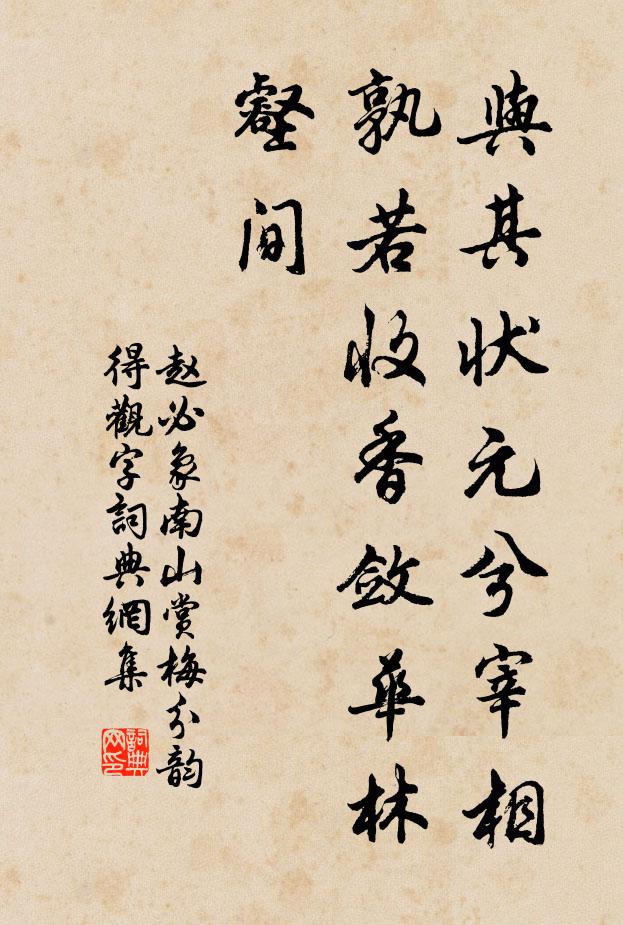 與其狀元兮宰相
孰若收香斂華林
壑間
赵必象南山賞梅分韵
得觀字詞典網集
詞典
网印